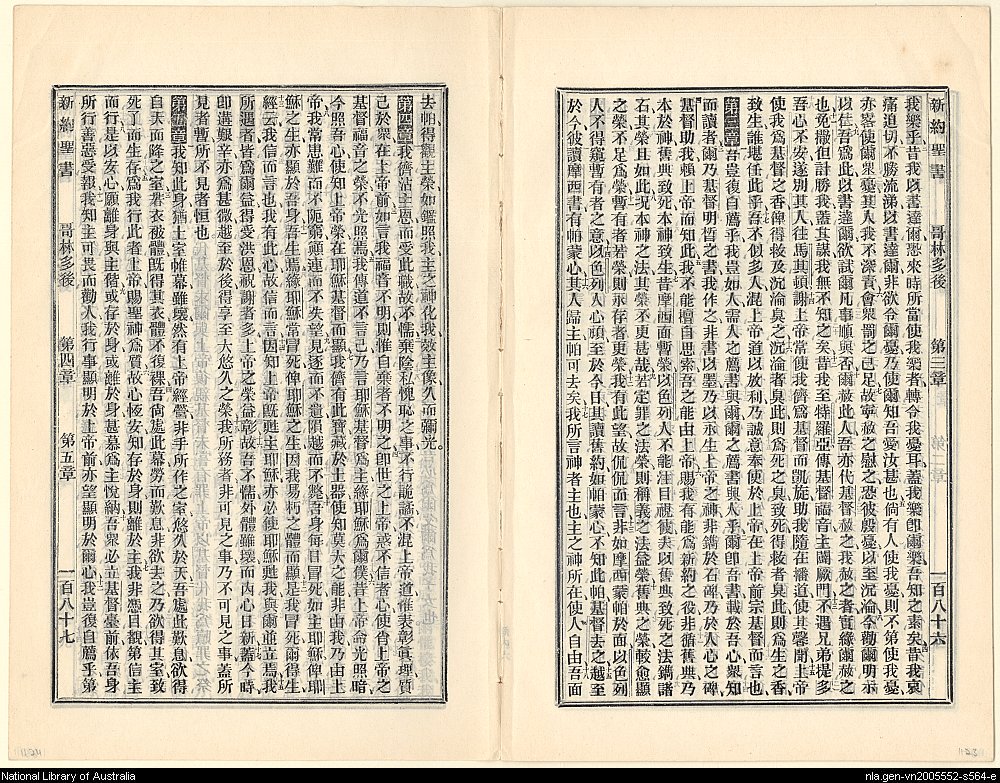 新約聖書 哥林多後 第三章 一百八十六
我樂乎昔我以書達爾恐來時所當使我樂者轉令我憂耳蓋我樂卽爾樂吾知之素矣昔我哀
痛迫切不勝流涕以書達爾非欲令爾憂乃使爾知吾愛汝甚也倘有人使我憂則不第使我憂
亦畧使爾衆憂其人我不深責會衆罰之已足故寧赦之慰之恐彼殷憂以至沉淪今勸爾明示
以仁吾爲此以書達爾欲試爾凡事順與否爾赦此人吾亦代基督赦之我赦之者實緣爾赦之
也免撒但計勝我蓋其謀我無不知之矣昔我至特羅亞傳基督福音主闢厥門不遇兄弟提多
吾心不安遂別其人往馬其頓謝上帝常使我儕爲基督而凱旋助我隨在播道使其馨聞上帝
使我爲基督之香俾得救及沉淪者臭之沉淪者臭此則爲死之臭致死得救者臭此則爲生之香
致生誰堪任此乎吾不似多人混上帝道以放利乃誠意奉使於上帝在上帝前宗基督而言也
第三章吾豈復自薦乎我豈如人需人之薦書與爾爾之薦書與人乎爾卽吾書載於吾心衆知
而讀者爾乃基督明晳之書我作之非書以墨乃以永生上帝之神非鐫於石碑乃於人心之碑
基督助我賴上帝而知此我不能擅自思索吾之能由上帝賜我有能爲新約之役非循舊典乃
本於神舊典致死神致生昔摩西面暫榮以色列人不能注目視彼夫以舊典致死之法鐫諸
石其榮且如此況本神之法其榮不更甚哉若定罪之法榮則稱義之法益榮舊典之榮較愈顯
之榮不足爲榮暫有者若榮則永存者更榮我有此望故侃侃而言非如摩西蒙帕於面以色列
人不得窺暫有者之意以色列人心頑至於今日其讀舊約如帕蒙心不知此帕基督去之越至
於今彼讀摩西書有帕蒙心其人歸主帕可去矣我所言神者主也主之神所在使人自由吾面
去帕得觀主榮如鑑照我主之神化我效主像久而彌光
第四章我儕沾主恩而受此職故不懦棄陰私愧恥之事不行詭譎不混上帝道惟表彰眞理質
己於衆在上帝前如言我福音不明則惟自棄者不明之卽世之上帝惑不信者心使肖上帝之
基督福音之榮不光照焉我傳道不言己乃言耶穌基督爲主緣耶穌爲爾僕昔上帝命光照暗
今照吾心使知上帝榮在耶穌基督而顯我儕有此寶藏於土器使知莫大之能非由我乃由上
帝我常患難而不阨窮顚連而不失望見逐而不遺隕越而不斃吾身每日冒死如主耶穌俾耶
穌之生亦顯於吾身吾生焉緣耶穌常冒死俾耶穌之生因我易朽之體而顯是我冒死爾得生
經云我信而言也我有此心故信而言因知上帝旣甦主耶穌亦必使耶穌甦我與爾並立焉我
所遇者皆爲爾益得受洪恩祝謝者多上帝之榮益彰故吾不懦外體雖壞而內心日新蓋今時
卽遘艱辛亦爲甚微越至於後得享至大悠久之榮我所務者非可見之事乃不可見之事蓋所
見者暫所不見者恒也
第五章我知此身猶土室帷幕雖壞然有上帝經營非手所作之室悠久於天吾處此歎息欲得
自天而降之室若衣被體旣得其衣體不復裸吾尙處此幕勞而歎息非欲去之乃欲得其室致
死亡而生存爲我行此者上帝賜聖神爲質故心恆安知存於身則離於主我非憑目覩第信主
而行是以安心願離身與主偕或存於身或離於身甚慕爲主悅納吾衆必立基督臺前依吾身
所行善惡受報我知主可畏而勸人我行事顯明於上帝前亦望顯明於爾心我豈復自薦乎第
新約聖書 哥林多後 第四章 第五章 一百八十七
National Library of Australia
nla.gen-vn2005552-s564-e